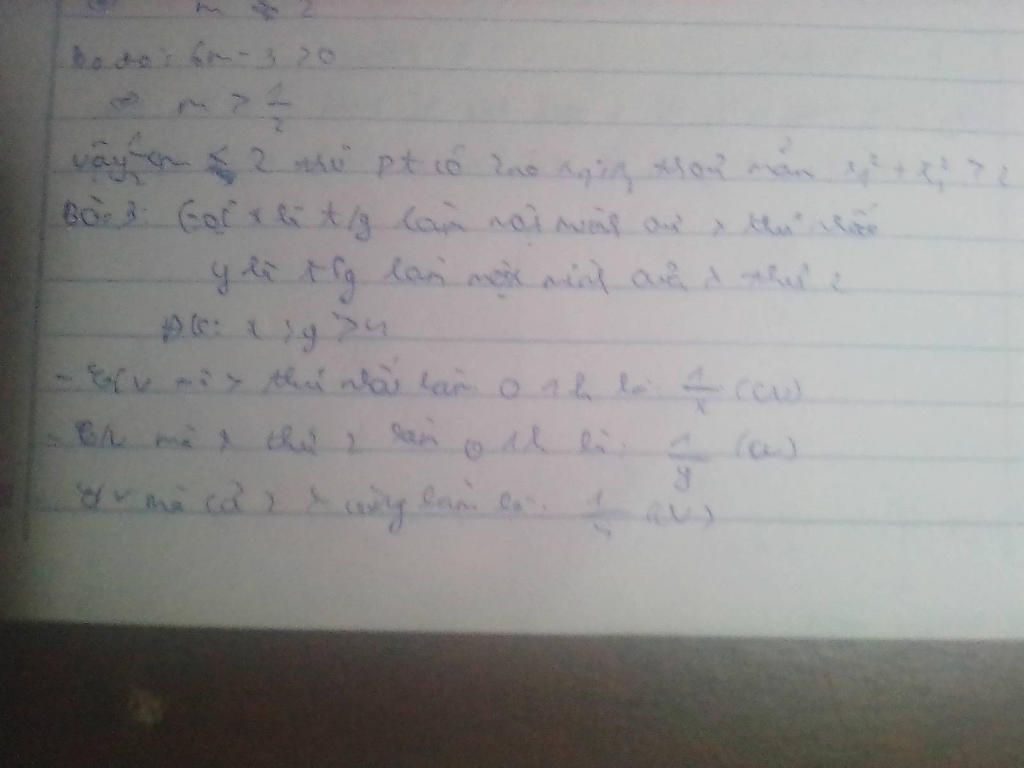 m 2
Do đó: 6m - 3 > 0
⇔ m > 1/2
Vậy 1/2 < m ≤ 2 thì pt có 2 no x1; x2 thoả mãn x1² + x2² > 2
Bài 3: Gọi x là t/g làm một mình thứ nhất
y là t/g làm một mình thứ 2
ĐK: x; y > 4
- mà thứ nhất làm 1h là: 1/x (CV)
- mà thứ 2 làm 1h là: 1/y (CV)
mà cả 2 cùng làm là: 1/4 (CV)